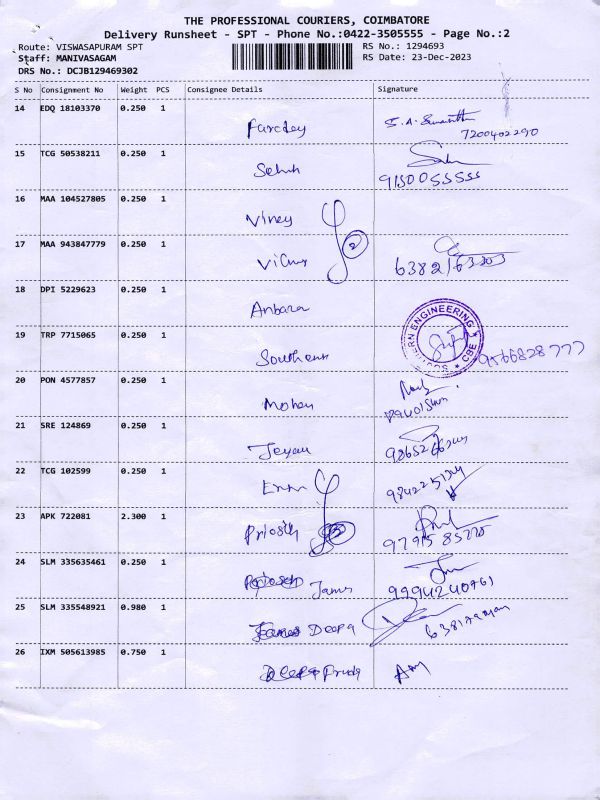 THE PROFESSIONAL COURIERS, COIMBATORE
Delivery Runsheet - SPT - Phone No.:0422-3505555 - Page No.:2
Route: VISWASAPURAM SPT RS No.: 1294693
Staff: MANIVASAGAM RS Date: 23-Dec-2023
DRS No.: DCJB129469302
S No Consignment No Weight PCS Consignee Details Signature
14 EDQ 18103370 0.250 1
7200402290
15 TCG 50538211 0.250 1
9150055555
16 MAA 104527805 0.250 1 Viney
17 MAA 943847779 0.250 1
2
18 DPI 5229623 0.250 1 Anbara
19 TRP 7715065 0.250 1 Southern
SOUTHERN ENGINEERING CBE
9566828777
20 PON 4577857 0.250 1 Mohan
21 SRE 124869 0.250 1 Jeyau
22 TCG 102599 0.250 1
23 APK 722081 2.300 1
97915 85220
24 SLM 335635461 0.250 1 James
9994240761
25 SLM 335548921 0.980 1 Deepa
26 IXM 505613985 0.750 1